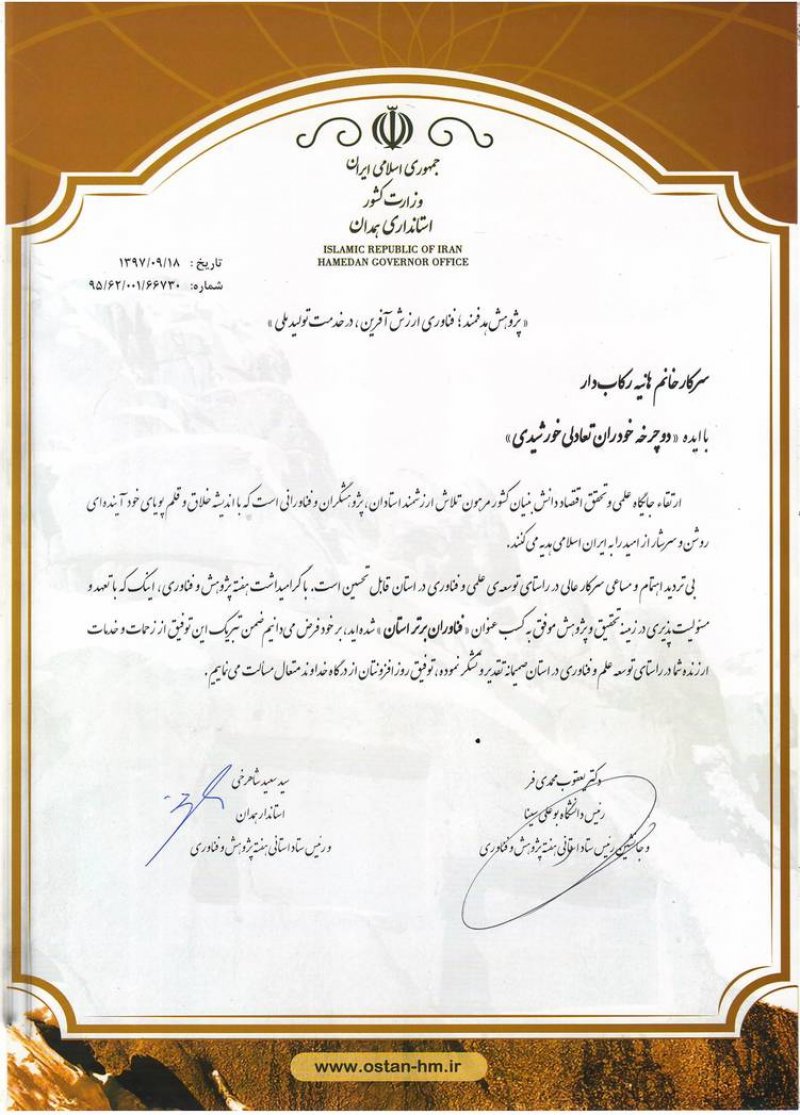 جمهوری اسلامی ایران
وزارت کشور
استانداری همدان
ISLAMIC REPUBLIC OF IRAN
HAMEDAN GOVERNOR OFFICE
تاریخ : ۱۳۹۷/۰۹/۱۸
شماره: ۹۵/۶۲/۰۰۱/۶۶۷۳۰
«پژوهش هدفمند؛ فناوری ارزش آفرین، در خدمت تولید ملی»
سرکار خانم هانیه رکاب دار
با ایده «دوچرخه خودران تعادلی خورشیدی»
ارتقاء جایگاه علمی و تحقق اقتصاد دانش بنیان کشور مرهون تلاش ارزشمند استادان، پژوهشگران و فناورانی است که با اندیشه خلاق و قلم پویای خود آینده ای
روشن و سرشار از امید را به ایران اسلامی هدیه می کنند.
بی تردید اهتمام و مساعی سرکار عالی در راستای توسعه ی علمی و فناوری در استان قابل تحسین است. با گرامیداشت هفته پژوهش و فناوری، اینک که با تعهد و
مسئولیت پذیری در زمینه تحقیق و پژوهش موفق به کسب عنوان «فناوران برتر استان» شده اید، بر خود فرض می دانیم ضمن تبریک این توفیق از زحمات و خدمات
ارزنده شما در راستای توسعه علم و فناوری در استان صمیمانه تقدیر و تشکر نموده، توفیق روز افزونتان از درگاه خداوند متعال مسالت می نماییم.
دکتر یعقوب محمدی فر
رئیس دانشگاه بوعلی سینا
و جانشین رئیس ستاد استانی هفته پژوهش و فناوری
سید سعید شاهرخی
استاندار همدان
و رئیس ستاد استانی هفته پژوهش و فناوری
www.ostan-hm.ir